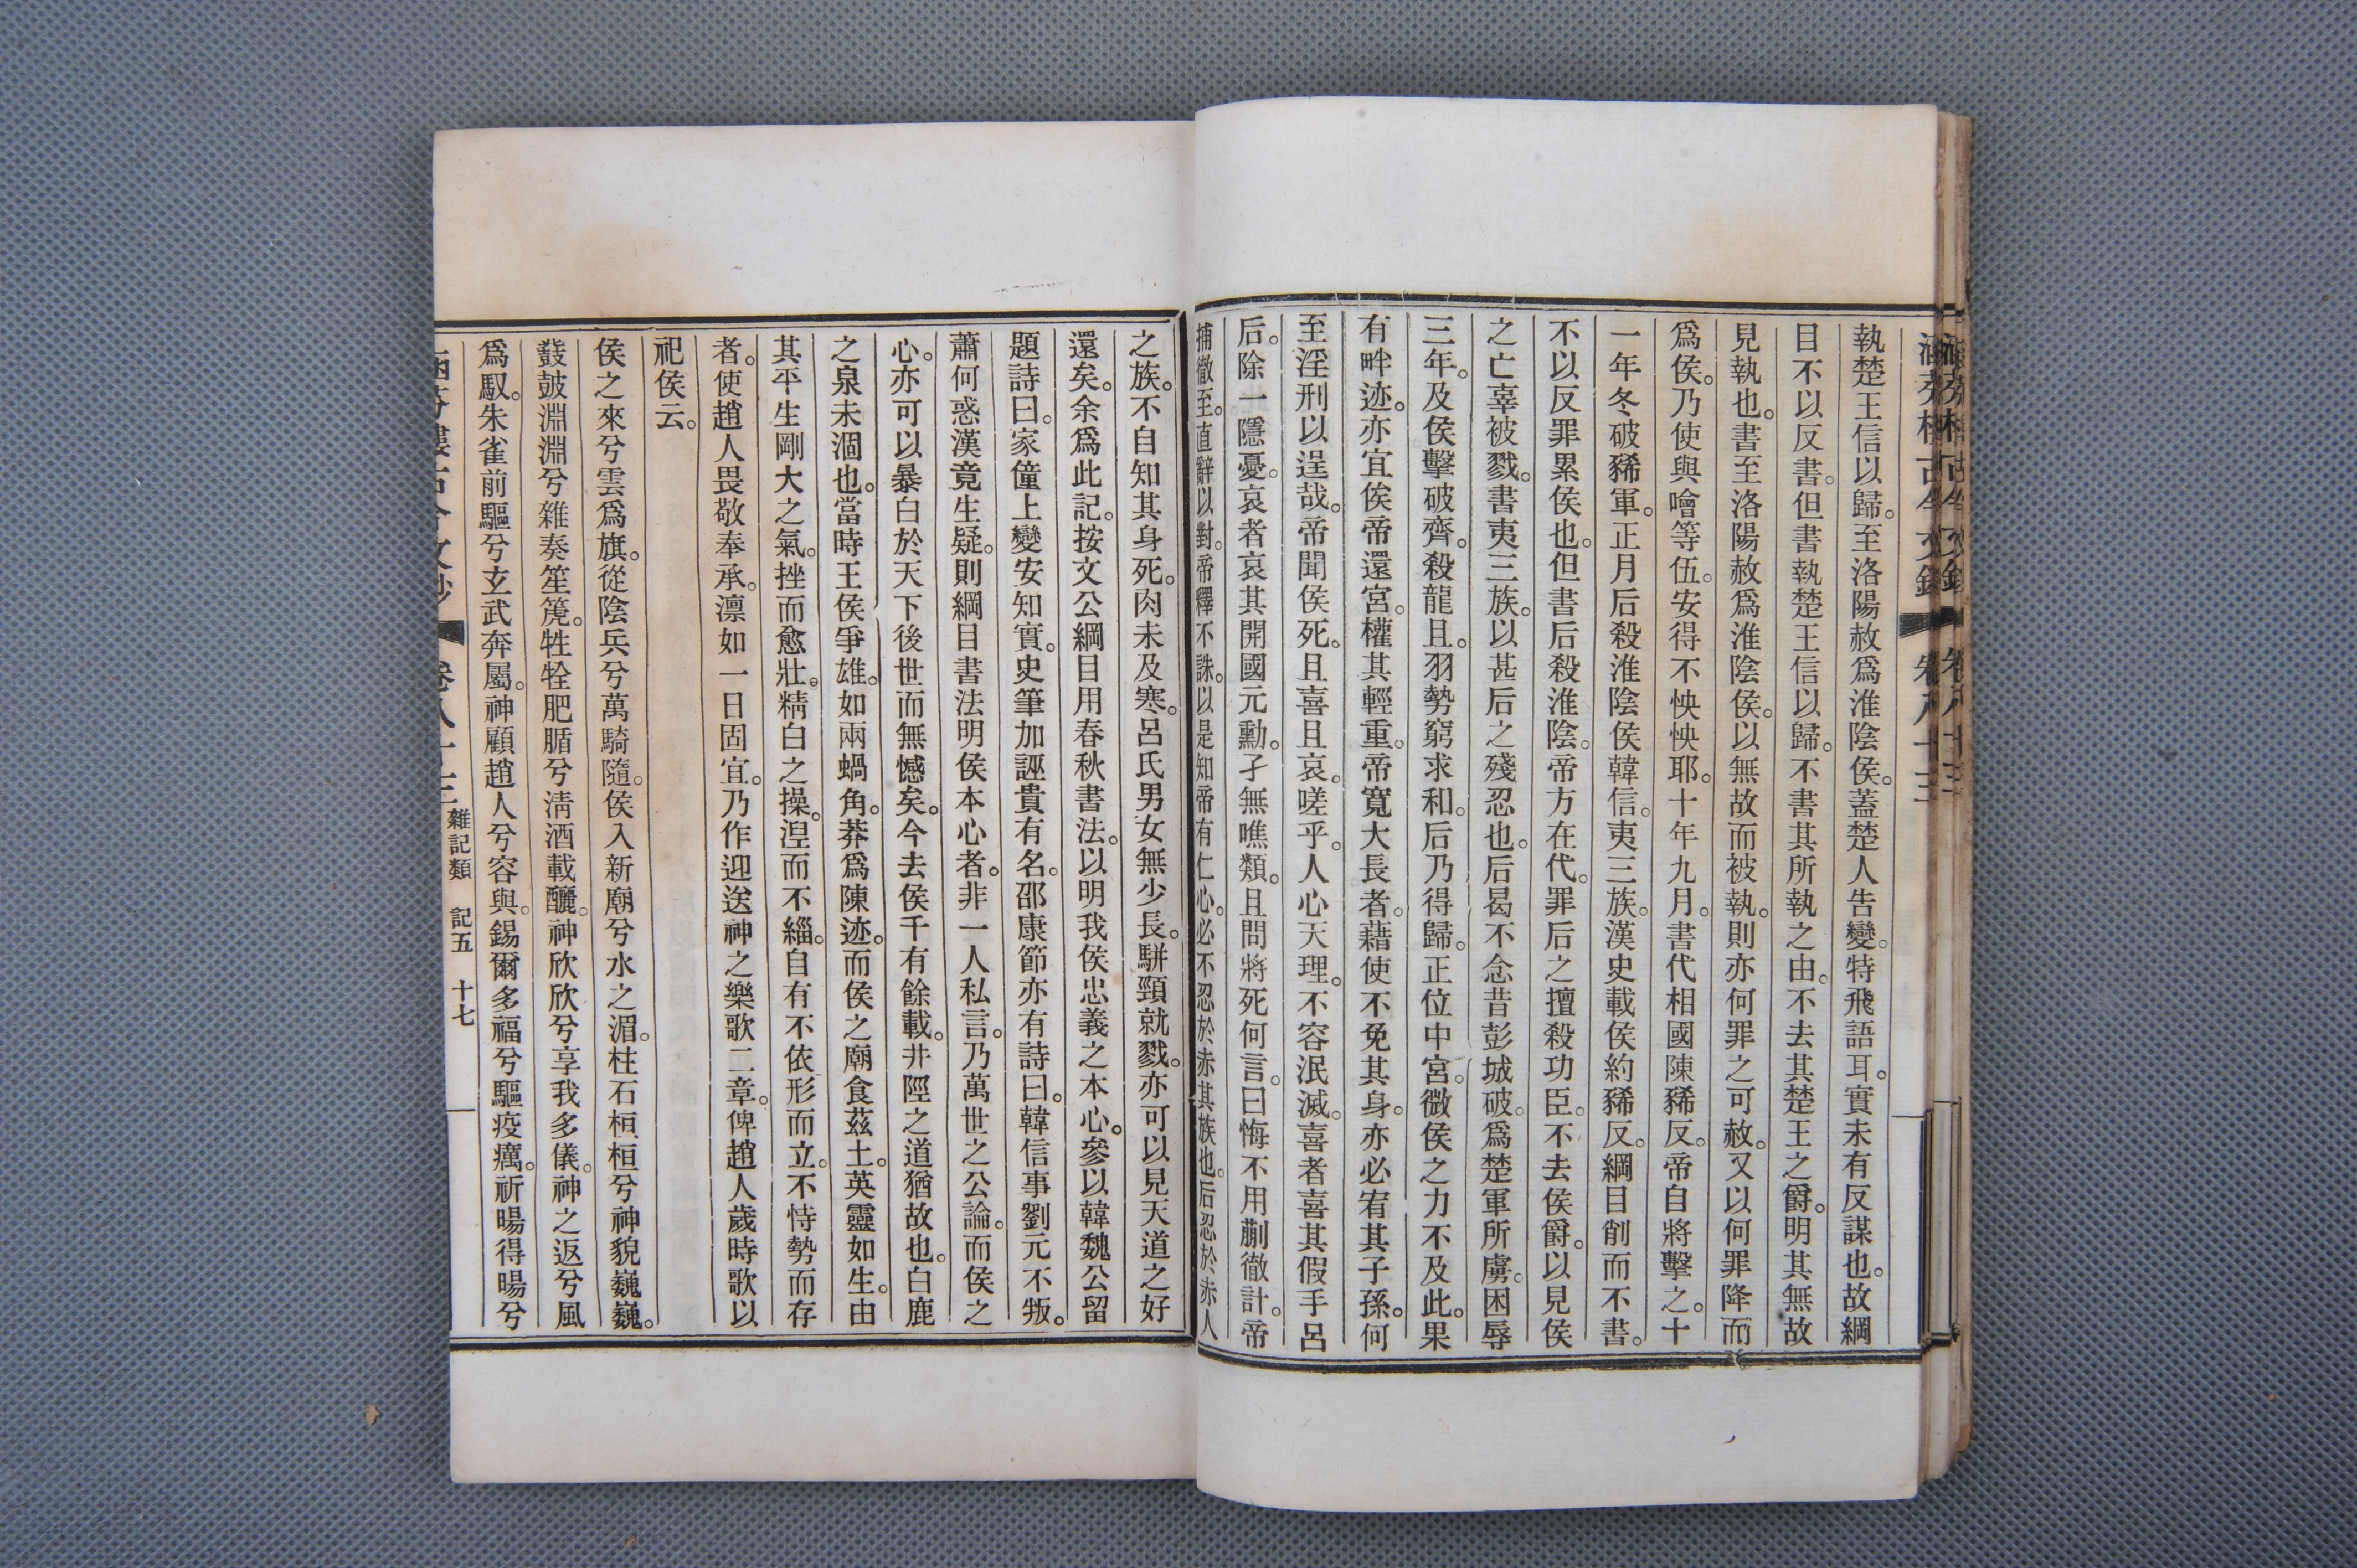 執楚王信以歸。至洛陽赦爲淮陰侯。蓋楚人告變。特飛語耳。實未有反謀也。故綱
目不以反書。但書執楚王信以歸。不書其所執之由。不去其楚王之爵。明其無故
見執也。書至洛陽赦爲淮陰侯。以無故而被執。則亦何罪之可赦。又以何罪降而
爲侯。乃使與噲等伍。安得不怏怏耶。十年九月。書代相國陳豨反。帝自將擊之。十
一年冬破豨軍。正月后殺淮陰侯韓信。夷三族。漢史載侯約豨反。綱目削而不書。
不以反罪累侯也。但書后殺淮陰。帝方在代。罪后之擅殺功臣。不去侯爵。以見侯
之亡辜被戮。書夷三族。以甚后之殘忍也。后曷不念昔彭城破。爲楚軍所虜。困辱
三年。及侯擊破齊。殺龍且。羽勢窮求和。后乃得歸。正位中宮。微侯之力不及此。果
有畔迹。亦宜俟帝還宮。權其輕重。帝寬大長者。藉使不免其身。亦必宥其子孫。何
至淫刑以逞哉。帝聞侯死。且喜且哀。嗟乎。人心天理。不容泯滅。喜者喜其假手呂
后。除一隱憂。哀者哀其開國元勳。孑無噍類。且問將死何言。曰悔不用蒯徹計。帝
捕徹至。直辭以對。帝釋不誅。以是知帝有仁心。必不忍於赤其族也。后忍於赤人
之族。不自知其身死。肉未及寒。呂氏男女無少長。駢頸就戮。亦可以見天道之好
還矣。余爲此記。按文公綱目用春秋書法。以明我侯忠義之本心。參以韓魏公留
題詩曰。家僮上變安知實。史筆加誣貴有名。邵康節亦有詩曰。韓信事劉元不叛。
蕭何惑漢竟生疑。則綱目書法明侯本心者。非一人私言。乃萬世之公論。而侯之
心。亦可以暴白於天下後世而無憾矣。今去侯千有餘載。井陘之道猶故也。白鹿
之泉未涸也。當時王侯爭雄。如兩蝸角。莽爲陳迹。而侯之廟食茲土。英靈如生。由
其平生剛大之氣。挫而愈壯。精白之操。湼而不緇。自有不依形而立。不恃勢而存
者。使趙人畏敬奉承。凛如一日固宜。乃作迎送神之樂歌二章。俾趙人歲時歌以
祀侯云。
侯之來兮雲爲旗。從陰兵兮萬騎隨。侯入新廟兮水之湄。柱石桓桓兮神貌巍巍。
鼗鼓淵淵兮雜奏笙箎。牲牷肥腯兮淸酒載釃。神欣欣兮享我多儀。神之返兮風
爲馭。朱雀前驅兮玄武奔屬。神顧趙人兮容與。錫爾多福兮驅疫癘。祈暘得暘兮
涵芬樓古今文鈔 卷八十三 雜記類 記五 十七